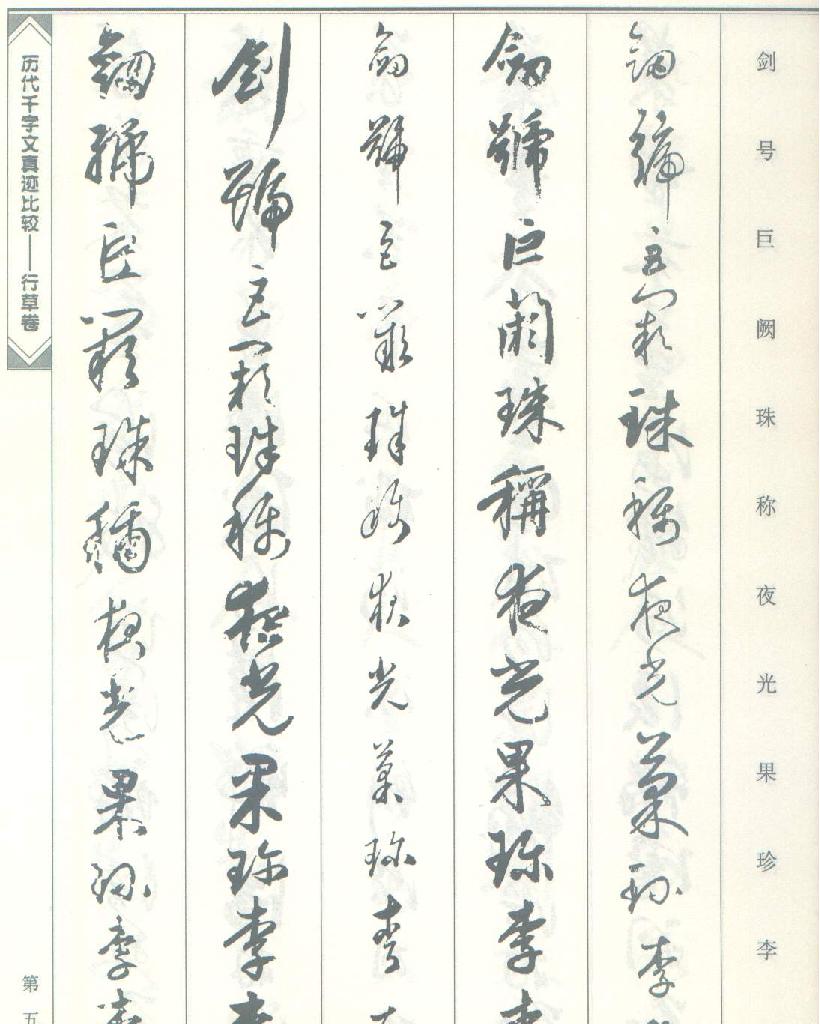 剑号巨阙珠称夜光果珍李
劒號巨闕珠稱夜光菓珍李
劒號巨闕珠稱夜光果珍李
劒號巨闕珠稱夜光菓珍李
劍號巨闕珠稱夜光果珍李
劒號巨闕珠稱夜光果珍李
历代千字文真迹比较——行草卷
第五